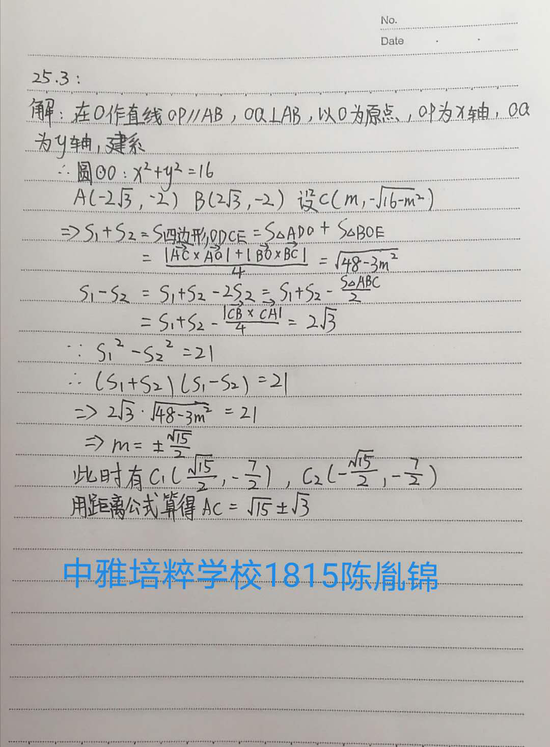 No.
Date
25.3:
解：在O作直线OP//AB，OQ⊥AB，以O为原点，OP为x轴，OQ
为y轴，建系
∴圆⊙O：x²+y²=16
A(-2√3，-2) B(2√3，-2) 设C(m，-√(16-m²))
⇒S₁+S₂=S四边形ODCE=S△ADO+S△BOE
= (|AC×AO|+|BO×BC|)/4 = √(48-3m²)
S₁-S₂ = S₁+S₂-2S₂ = S₁+S₂- S△ABC/2
= S₁+S₂- |CB×CA|/4 = 2√3
∵ S₁²-S₂²=21
∴ (S₁+S₂)(S₁-S₂)=21
⇒ 2√3·√(48-3m²) = 21
⇒ m=±√15/2
此时有C₁(√15/2，-7/2)，C₂(-√15/2，-7/2)
用距离公式算得AC=√15±√3
中雅培粹学校1815陈胤锦